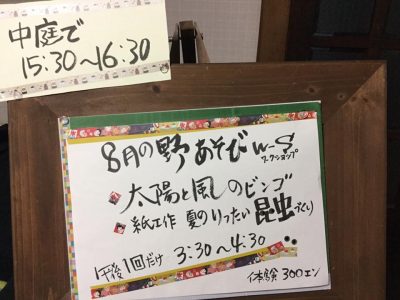 中庭で
15:30~16:30
8月の野あそびW-S
ワークショップ
太陽と風のビンゴ
紙工作 夏のりったい昆虫づくり
午後1回だけ 3:30~4:30
体験 300エン